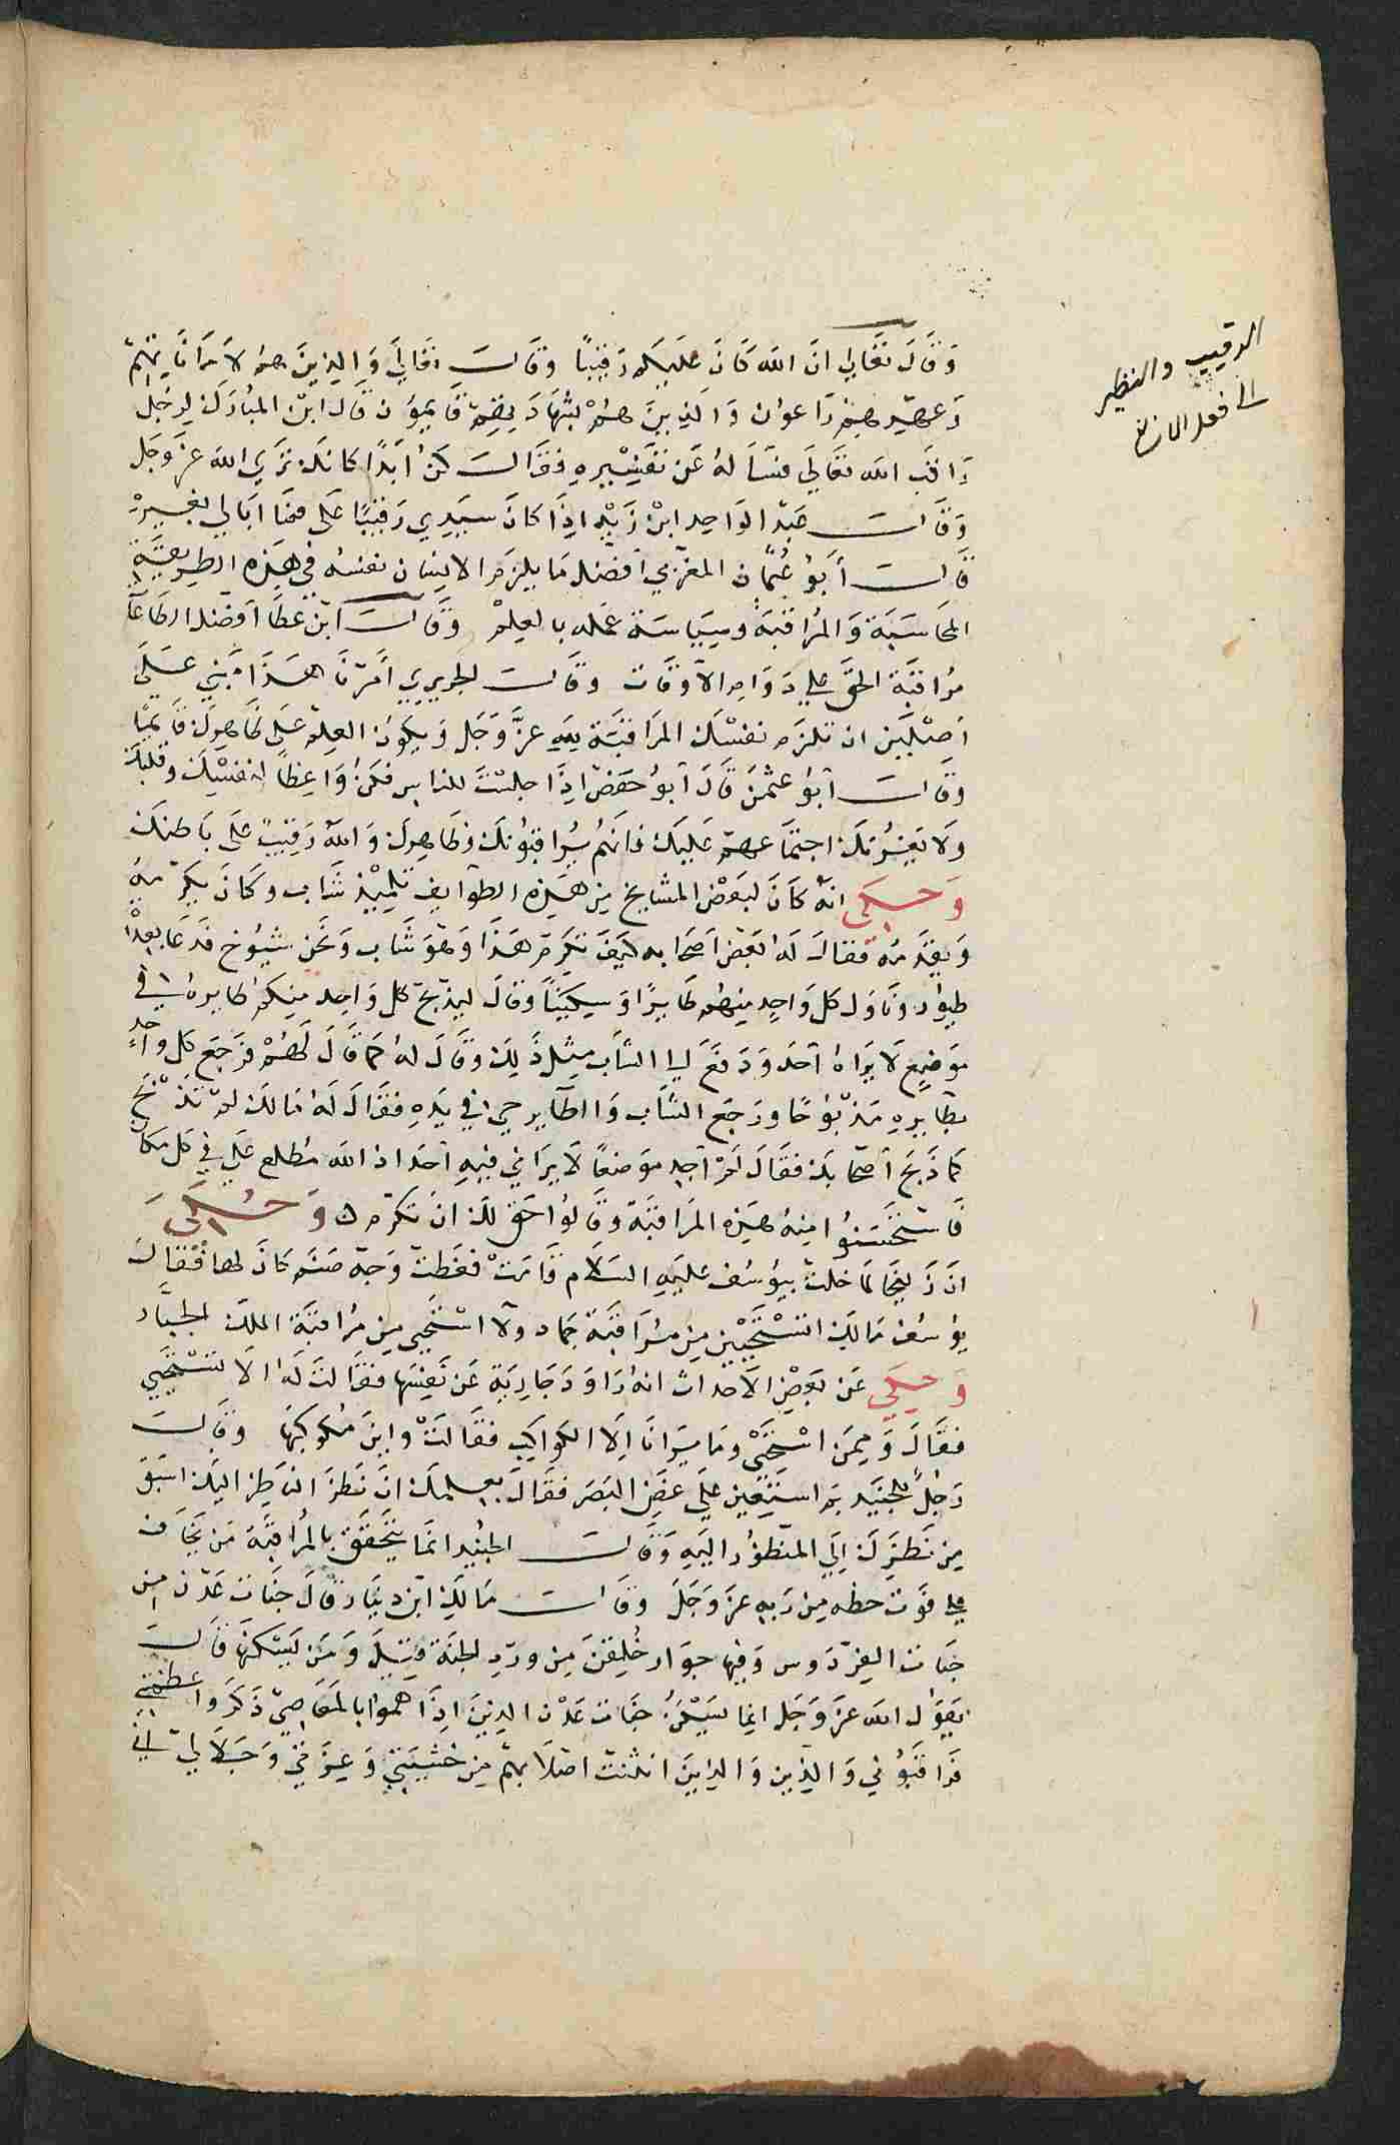 الرقيب والنظير
وَقَالَ تعَالى انَ اللهَ كَانَ عَليَكم رَقيبًا وقالَ تعَالى وَالذينَ هم لاَمَانَاتِهِمْ
وَعهدِهم رَاعون وَالذينَ هُمْ بشهَادَتِهِمْ قَايمون قال ابن المبُارَك لرجُل
رَاقب الله تعَالى فسَاَلهُ عَن تفسْيرهِ فقَالَ كنُ ابَدًا كانك ترَى الله عزوَجَل
وَقالَ عَبد الوَاحِد ابنْ زَيْد اذَا كانَ سَيدِي رَقيبًا عَلى فمَا ابَالي بغيرهْ
قالَ أبَوُ عُثمان المغزبي افضَل مَا يلزَم الانِسَان نفسَه في هَذِه الطريقة
المحاسَبَة وَالمرُاقبَة وسِيَاسَة عَمله بالعِلمْ وقَالَ ابنْ عَطَا افضَل الطَاعَا
مرُاقبَة الحَق على دَوَام الاَوقَات وقَالَ الجريري اَمرْنَا هَذَا مَبني عَلى
اصْلَين ان تلزَم نفسْك المرَاقبَة لله عزَّوَجَل وَيكون العِلم عَلى ظَاهِرك قَايمًا
وقالَ أبَوُ عثمن قَالَ أبَوُ حَفصْ اِذَا جلسْتَ للناسِ فكنُ وَاعِظاً لنفسْك وقلبك
ولاَ يَغُرنك اجتماعهم عَليَك فانَهُم يُرَاقبُونك ظَاهِرك وَاللهُ رَقيبُ عَلى بَاطنك
وَحُكى انهُ كَانَ لبَعْض المشايخ من هَذِه الطوايف تلميْذ شَاب وكَانَ يكرمهُ
وَيقدمُه فقالَ لهَ بعَض اَصحَابه كيفَ تكرم هَذَا وَهوَ شَاب وَنحَن شيُوخ فَدَعَا بعِدة
طيُور ونَاوَل كل وَاحِد مِنهُم طَايرًا وَسِكينًا وقالَ ليذبحَ كل وَاحِد منِكم طايرهُ في
مَوَضِع لاَ يَرَاهُ اَحَد وَدَفعَ الى الشَاب مِثل ذَلِك وقَالَ لهُ كمَا قَالَ لهَمُ فَرَجعَ كل واحد
بطَايرهِ مَذبوُحًا ورَجعَ الشَاب وَالطَاير حيَ في يَدِهِ فقَالَ لهُ مَالك لم تذْبَح
كمَا ذَبحَ اَصحَابك فقَالَ لمَ اجد مَوضِعًا لاَ يَرَاني فيهِ اَحَد اذ الله مُطلع عَلي في كل مكَا
فَاسْتحَسَنوُا مِنهُ هَذِه المرَاقبَة وقَالوُا حَق لك ان تكرم وَحُكى
انَ زَليخَا لمَا خَلتَ بيوُسُف عَليَهِ السَلام قَامَتْ فغَطت وَجهَ صَنم كانَ لهَا فقَالَ
يوُسُف مَا لك اتسْتَحيينَ مِن مرَاقبَة جَماد ولاَ اسْتحي مِن مرُاقبَة الملك الجبَار
وَحُكى عَن بَعض الاحداث انهُ رَاوَدَ جَاريَة عَن نفسِهَا فقَالت لهُ الاَ تستحيي
فقَالَ وَمِمَن اسْتحي ومَا يرَانَا اِلاَ الكوَاكب فقَالتْ وَاينَ مُكَوكبها وقالَ
رَجُل للجُنيد بم استَعينِ عَلى غَضِ البَصَر فقَالَ بعِلمك انَ نظَر الناظِر اليك اَسَبق
من نَظَرك الى المنظوُر اليَهِ وَقَالَ الجُنيد انمَا يتَحَقق بالمرُاقبَة مَن يخَاف
على فَوَت حظه من رَبه عز وَجَل وقالَ مَالك ابن دينَار قَالَ جنَات عَدْن من
جنَات الفِردَوس وَفيهَا جوَار خُلِقنَ مِن ورَدِ الجنَة قيلَ وَمَن يَسكنهَا قَالَ
يَقوُل الله عَزوَجَل انِمَا يسَكنُ جنَات عَدْن الذينَ اذَا همَوُا بالمعَاصِي ذَكَروا عظمَتي
فَرَاقبَوُني وَالذين وَالذينَ انثنت اصْلاَبهم من خشيتي وَعِزَتي وَجَلاَلي اني